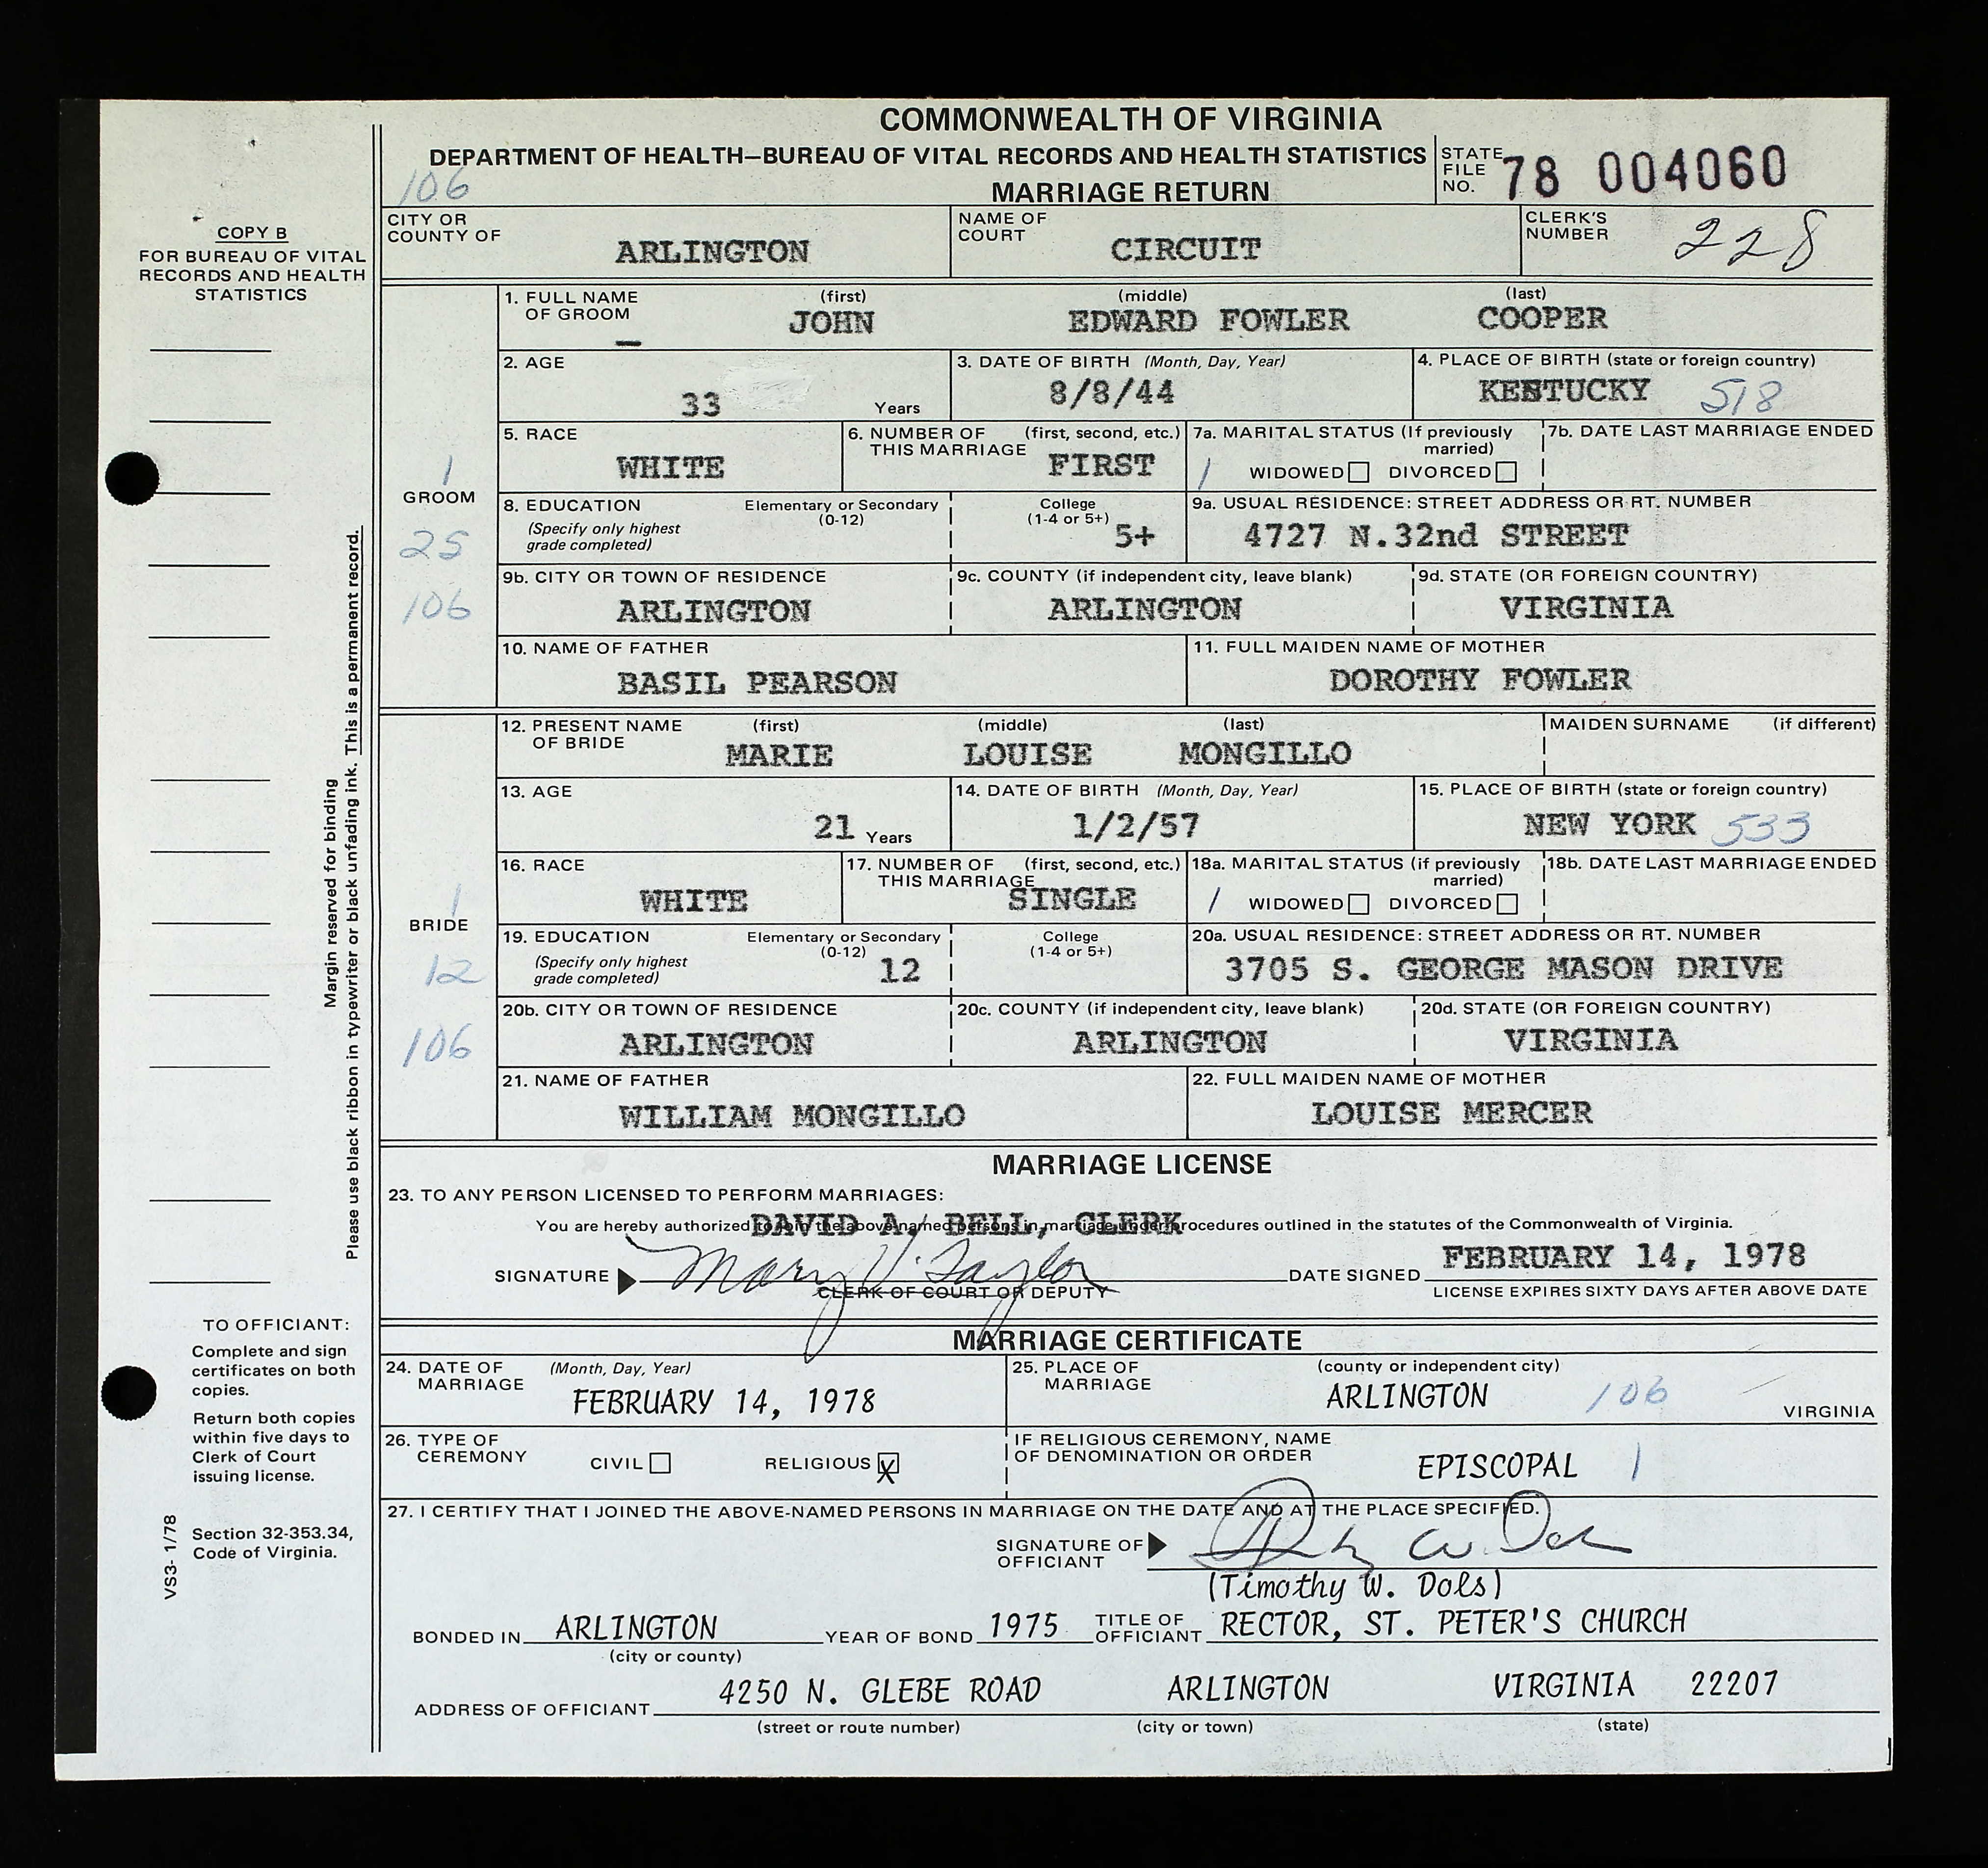 COMMONWEALTH OF VIRGINIA
DEPARTMENT OF HEALTH—BUREAU OF VITAL RECORDS AND HEALTH STATISTICS
106
MARRIAGE RETURN
STATE FILE NO. 78 004060
COPY B
FOR BUREAU OF VITAL
RECORDS AND HEALTH
STATISTICS
CITY OR COUNTY OF ARLINGTON
NAME OF COURT CIRCUIT
CLERK'S NUMBER 228
GROOM
1
25
106
1. FULL NAME OF GROOM (first) JOHN (middle) EDWARD FOWLER (last) COOPER
2. AGE 33 Years
3. DATE OF BIRTH (Month, Day, Year) 8/8/44
4. PLACE OF BIRTH (state or foreign country) KENTUCKY 518
5. RACE WHITE
6. NUMBER OF THIS MARRIAGE (first, second, etc.) FIRST
7a. MARITAL STATUS (If previously married) 1 WIDOWED DIVORCED
7b. DATE LAST MARRIAGE ENDED
8. EDUCATION (Specify only highest grade completed) Elementary or Secondary (0-12) College (1-4 or 5+) 5+
9a. USUAL RESIDENCE: STREET ADDRESS OR RT. NUMBER 4727 N.32nd STREET
9b. CITY OR TOWN OF RESIDENCE ARLINGTON
9c. COUNTY (if independent city, leave blank) ARLINGTON
9d. STATE (OR FOREIGN COUNTRY) VIRGINIA
10. NAME OF FATHER BASIL PEARSON
11. FULL MAIDEN NAME OF MOTHER DOROTHY FOWLER
BRIDE
1
12
106
12. PRESENT NAME OF BRIDE (first) MARIE (middle) LOUISE (last) MONGILLO
MAIDEN SURNAME (if different)
13. AGE 21 Years
14. DATE OF BIRTH (Month, Day, Year) 1/2/57
15. PLACE OF BIRTH (state or foreign country) NEW YORK 533
16. RACE WHITE
17. NUMBER OF THIS MARRIAGE (first, second, etc.) SINGLE
18a. MARITAL STATUS (if previously married) 1 WIDOWED DIVORCED
18b. DATE LAST MARRIAGE ENDED
19. EDUCATION (Specify only highest grade completed) Elementary or Secondary (0-12) 12 College (1-4 or 5+)
20a. USUAL RESIDENCE: STREET ADDRESS OR RT. NUMBER 3705 S. GEORGE MASON DRIVE
20b. CITY OR TOWN OF RESIDENCE ARLINGTON
20c. COUNTY (if independent city, leave blank) ARLINGTON
20d. STATE (OR FOREIGN COUNTRY) VIRGINIA
21. NAME OF FATHER WILLIAM MONGILLO
22. FULL MAIDEN NAME OF MOTHER LOUISE MERCER
Margin reserved for binding
Please use black ribbon in typewriter or black unfading ink. This is a permanent record.
MARRIAGE LICENSE
23. TO ANY PERSON LICENSED TO PERFORM MARRIAGES:
You are hereby authorized to join the above-named persons in marriage under procedures outlined in the statutes of the Commonwealth of Virginia.
DAVID A. BELL, CLERK
SIGNATURE Mary V. Taylor
CLERK OF COURT OR DEPUTY
DATE SIGNED FEBRUARY 14, 1978
LICENSE EXPIRES SIXTY DAYS AFTER ABOVE DATE
MARRIAGE CERTIFICATE
24. DATE OF MARRIAGE (Month, Day, Year) FEBRUARY 14, 1978
25. PLACE OF MARRIAGE (county or independent city) ARLINGTON 106 VIRGINIA
26. TYPE OF CEREMONY CIVIL RELIGIOUS X
IF RELIGIOUS CEREMONY, NAME OF DENOMINATION OR ORDER EPISCOPAL 1
27. I CERTIFY THAT I JOINED THE ABOVE-NAMED PERSONS IN MARRIAGE ON THE DATE AND AT THE PLACE SPECIFIED.
SIGNATURE OF OFFICIANT
(Timothy W. Dols)
BONDED IN ARLINGTON (city or county)
YEAR OF BOND 1975
TITLE OF OFFICIANT RECTOR, ST. PETER'S CHURCH
ADDRESS OF OFFICIANT 4250 N. GLEBE ROAD ARLINGTON VIRGINIA 22207
(street or route number) (city or town) (state)
TO OFFICIANT:
Complete and sign
certificates on both
copies.
Return both copies
within five days to
Clerk of Court
issuing license.
Section 32-353.34,
Code of Virginia.
VS3- 1/78